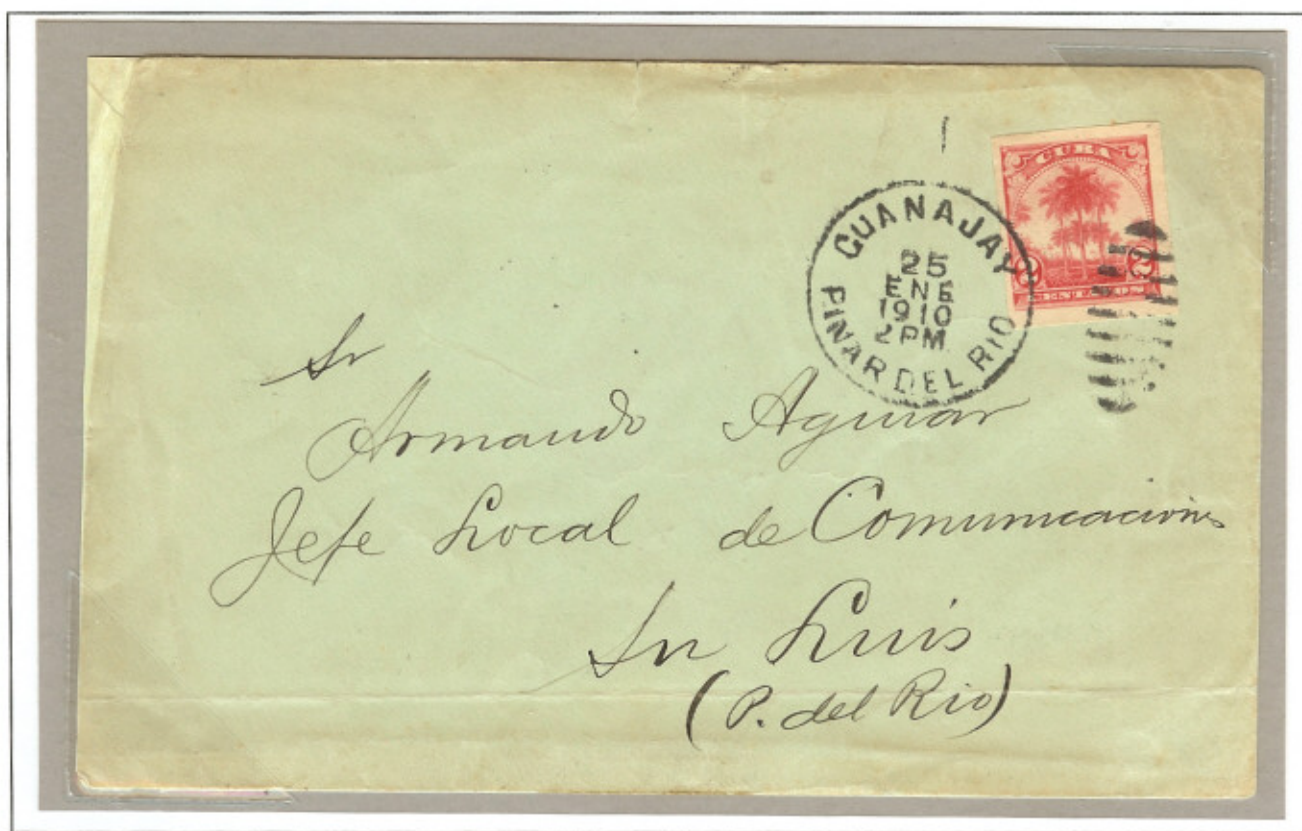 CUBA
2 2
CENTAVOS
GUANAJAY
25
ENE
1910
2 PM
PINAR DEL RIO
Sr
Armando Aguiar
Jefe Local de Comunicaciones
Sn Luis
(P. del Rio)